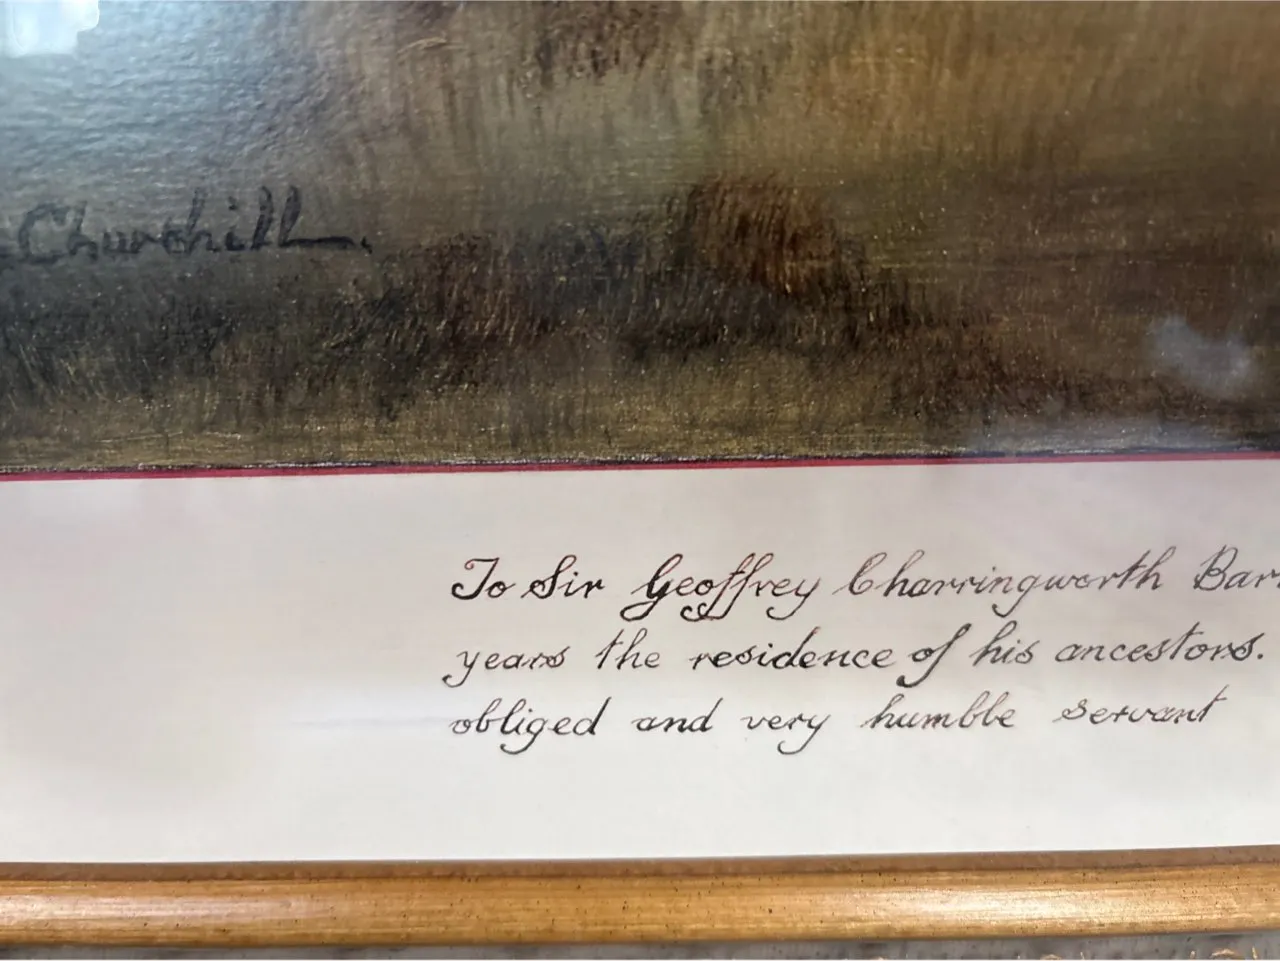 Churchill
To Sir Geoffrey Charringworth Bar
years the residence of his ancestors.
obliged and very humble servant